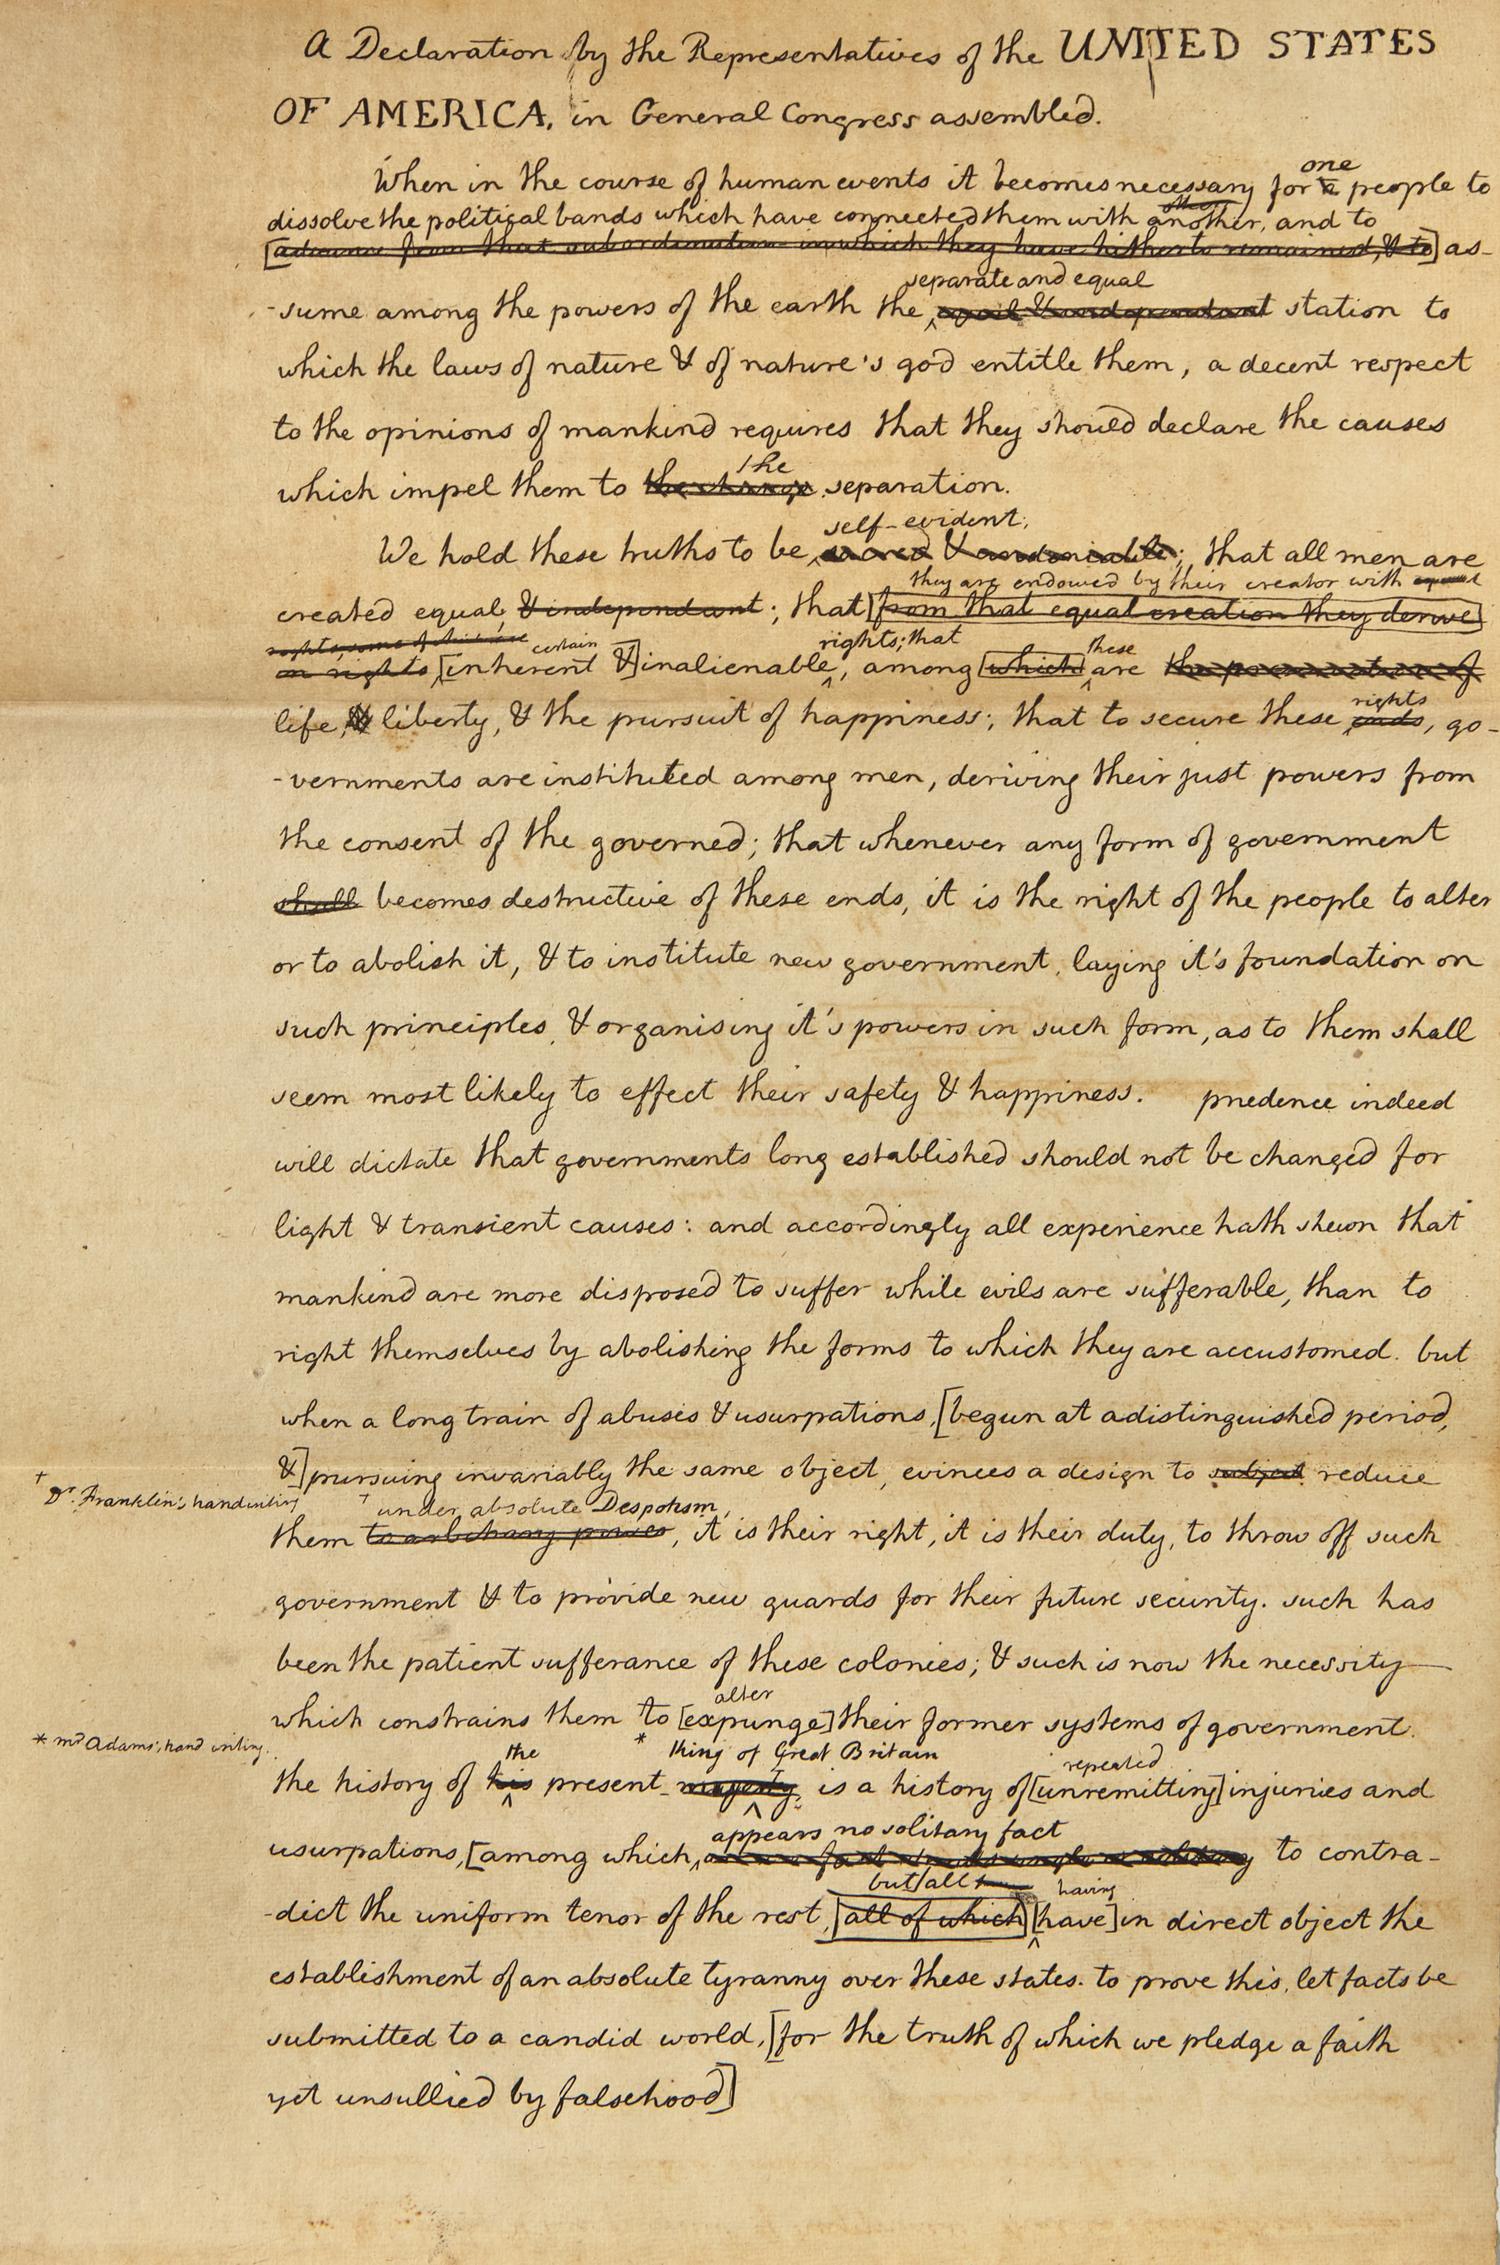 A Declaration by the Representatives of the UNITED STATES
OF AMERICA, in General Congress assembled.
one
When in the course of human events it becomes necessary for a people to
dissolve the political bands which have connected them with another, and to
[advance from that subordination in which they have hitherto remained, & to] as-
separate and equal
-sume among the powers of the earth the equal & independant station to
which the laws of nature & of nature's god entitle them, a decent respect
to the opinions of mankind requires that they should declare the causes
the
which impel them to the change separation.
self-evident;
We hold these truths to be sacred & undeniable; that all men are
they are endowed by their creator with equal
created equal & independant; that [from that equal creation they derive]
rights, some of which are certain rights; that these
in rights [inherent &] inalienable, among [which] are the preservation of
rights
life, & liberty, & the pursuit of happiness; that to secure these ends, go-
-vernments are instituted among men, deriving their just powers from
the consent of the governed; that whenever any form of government
shall becomes destructive of these ends, it is the right of the people to alter
or to abolish it, & to institute new government, laying it's foundation on
such principles & organising it's powers in such form, as to them shall
seem most likely to effect their safety & happiness. prudence indeed
will dictate that governments long established should not be changed for
light & transient causes: and accordingly all experience hath shewn that
mankind are more disposed to suffer while evils are sufferable, than to
right themselves by abolishing the forms to which they are accustomed. but
when a long train of abuses & usurpations, [begun at a distinguished period,
&] pursuing invariably the same object, evinces a design to subject reduce
† Dr. Franklin's handwriting † under absolute Despotism,
them to arbitrary power, it is their right, it is their duty, to throw off such
government & to provide new guards for their future security. such has
been the patient sufferance of these colonies; & such is now the necessity
alter
which constrains them to [expunge] their former systems of government.
* Mr Adams' hand writing. the * king of Great Britain repeated
the history of his present majesty is a history of [unremitting] injuries and
appears no solitary fact
usurpations, [among which, to contra-
but all having
-dict the uniform tenor of the rest, [all of which] [have] in direct object the
establishment of an absolute tyranny over these states. to prove this, let facts be
submitted to a candid world, [for the truth of which we pledge a faith
yet unsullied by falsehood]